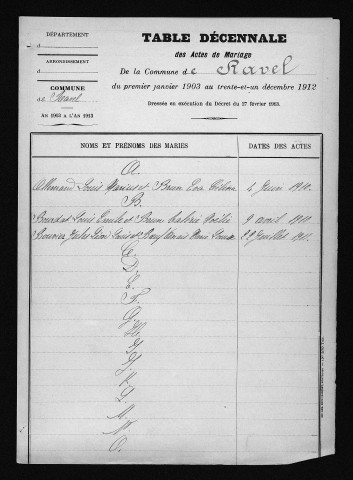 DÉPARTEMENT
d
ARRONDISSEMENT
d
COMMUNE
de Ravel
AN 1903 A L'AN 1913
TABLE DÉCENNALE
des Actes de Mariage
De la Commune de Ravel
du premier janvier 1903 au trente-et-un décembre 1912
Dressée en exécution du Décret du 17 février 1903.
NOMS ET PRÉNOMS DES MARIÉS DATES DES ACTES
A.
Allemand Louis Marius et Brun Eva 4 Juin 1910.
B.
Bourdet Louis Emile et Brun Valérie Noélie 9 avril 1910.
Bouvier Jules Léon Louis et 22 Juillet 191
C.
D.
E.
F.
G.
H.
I.
J.
K.
L.
M.
N.
O.